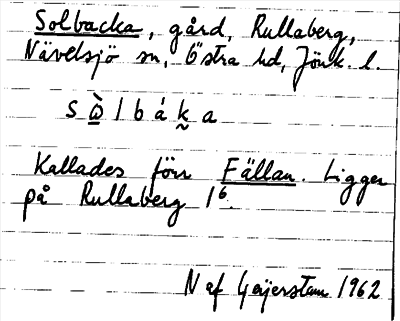 Solbacka, gård, Rullaberg,
Nävelsjö sn, Östra hd, Jönk. l.
s ò̲ l b á k̰ a
Kallades förr Fällan. Ligger
på Rullaberg 1⁶.
N af Geijerstam 1962